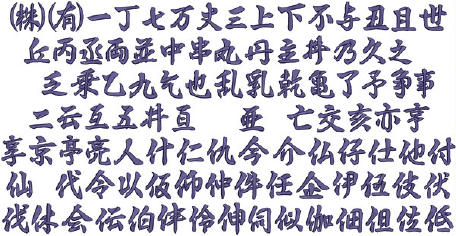 ㈱㈲一丁七万丈三上下不与丑且世
丘丙丞両並中串丸丹主丼乃久之
乏乗乙九乞也乱乳乾亀了予争事
二云互五井亘 亜 亡交亥亦亨
享京亭亮人什仁仇今介仏仔仕他付
仙 代令以仮仰仲件任企伊伍伎伏
伐休会伝伯伴伶伸伺似伽佃但位低